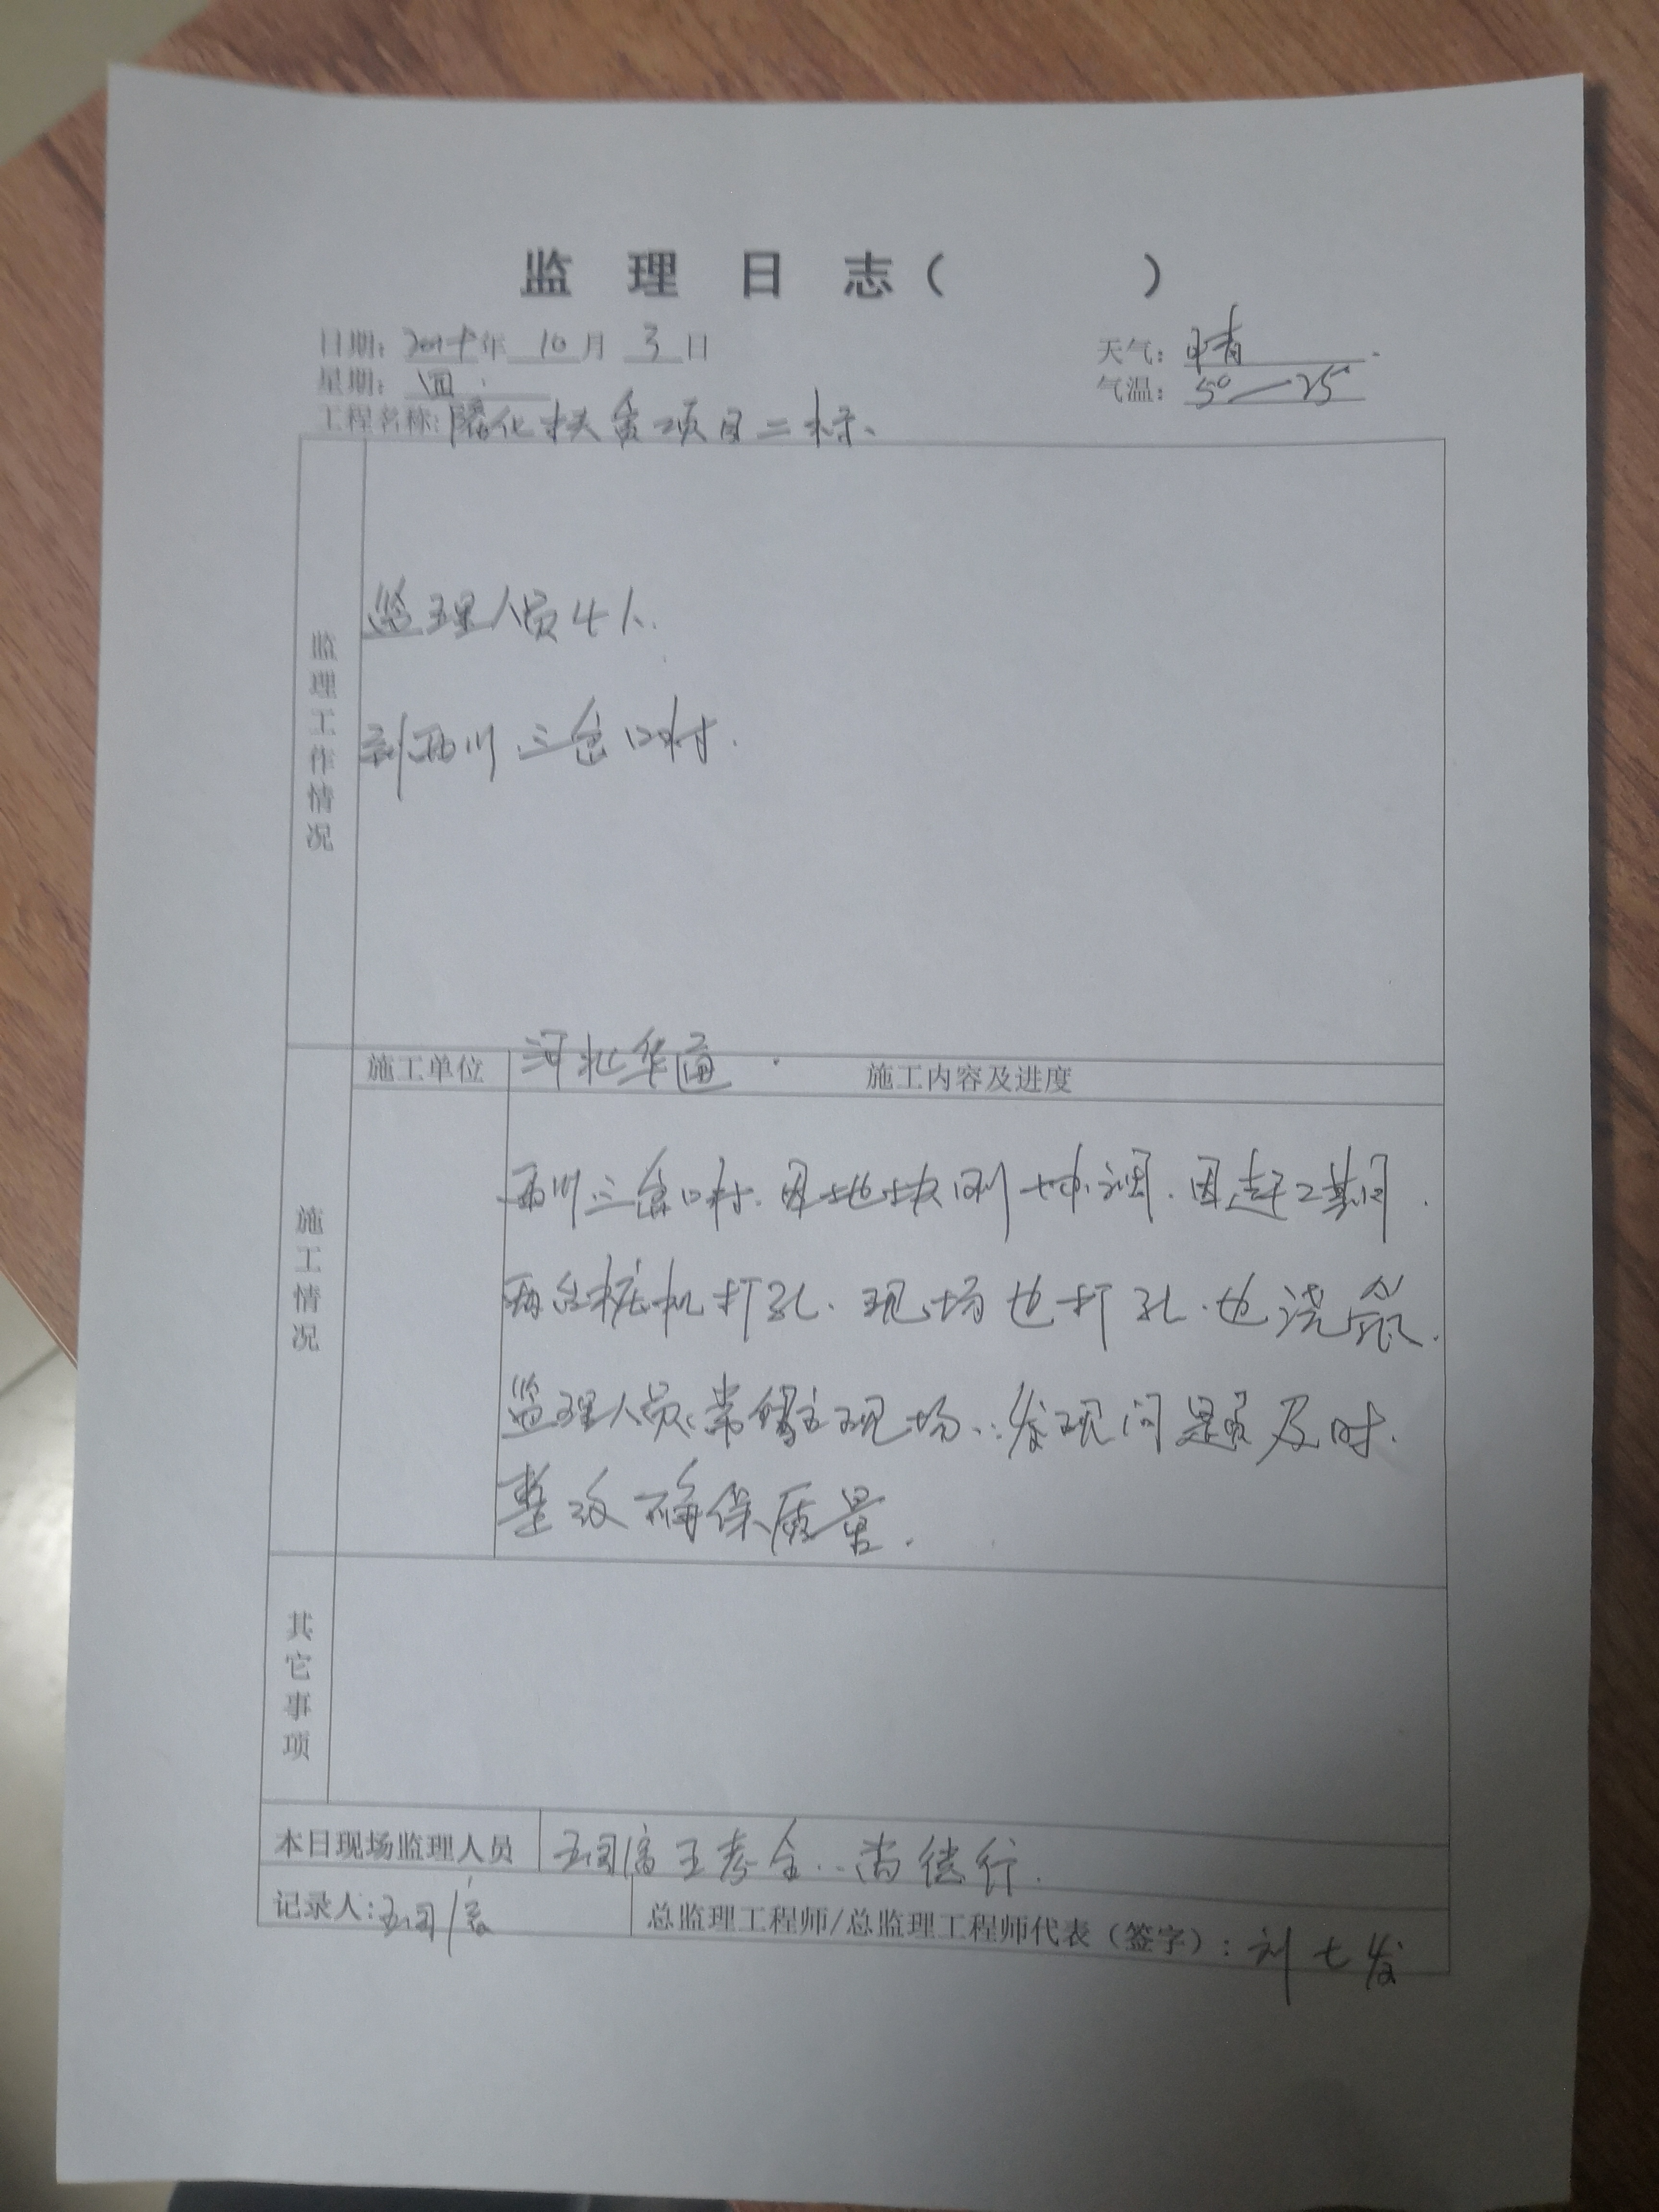 监理日志（ ）
日期: 年 10 月 3 日
天气: 晴
星期: 四
气温: 5°—25°
工程名称: 隆化扶贫项目二标、
监理工作情况
监理人员4人.
到西川三岔口村.
施工单位 河北华通 . 施工内容及进度
施工情况
西川三岔口村.因地块刚协调.因赶工期间.
两台桩机打孔.现场也打孔.也浇.
监理人员常住现场.发现问题及时.
整改确保质量.
其它事项
本日现场监理人员 王孝全..尚德行.
记录人:
总监理工程师/总监理工程师代表（签字）: 刘七发